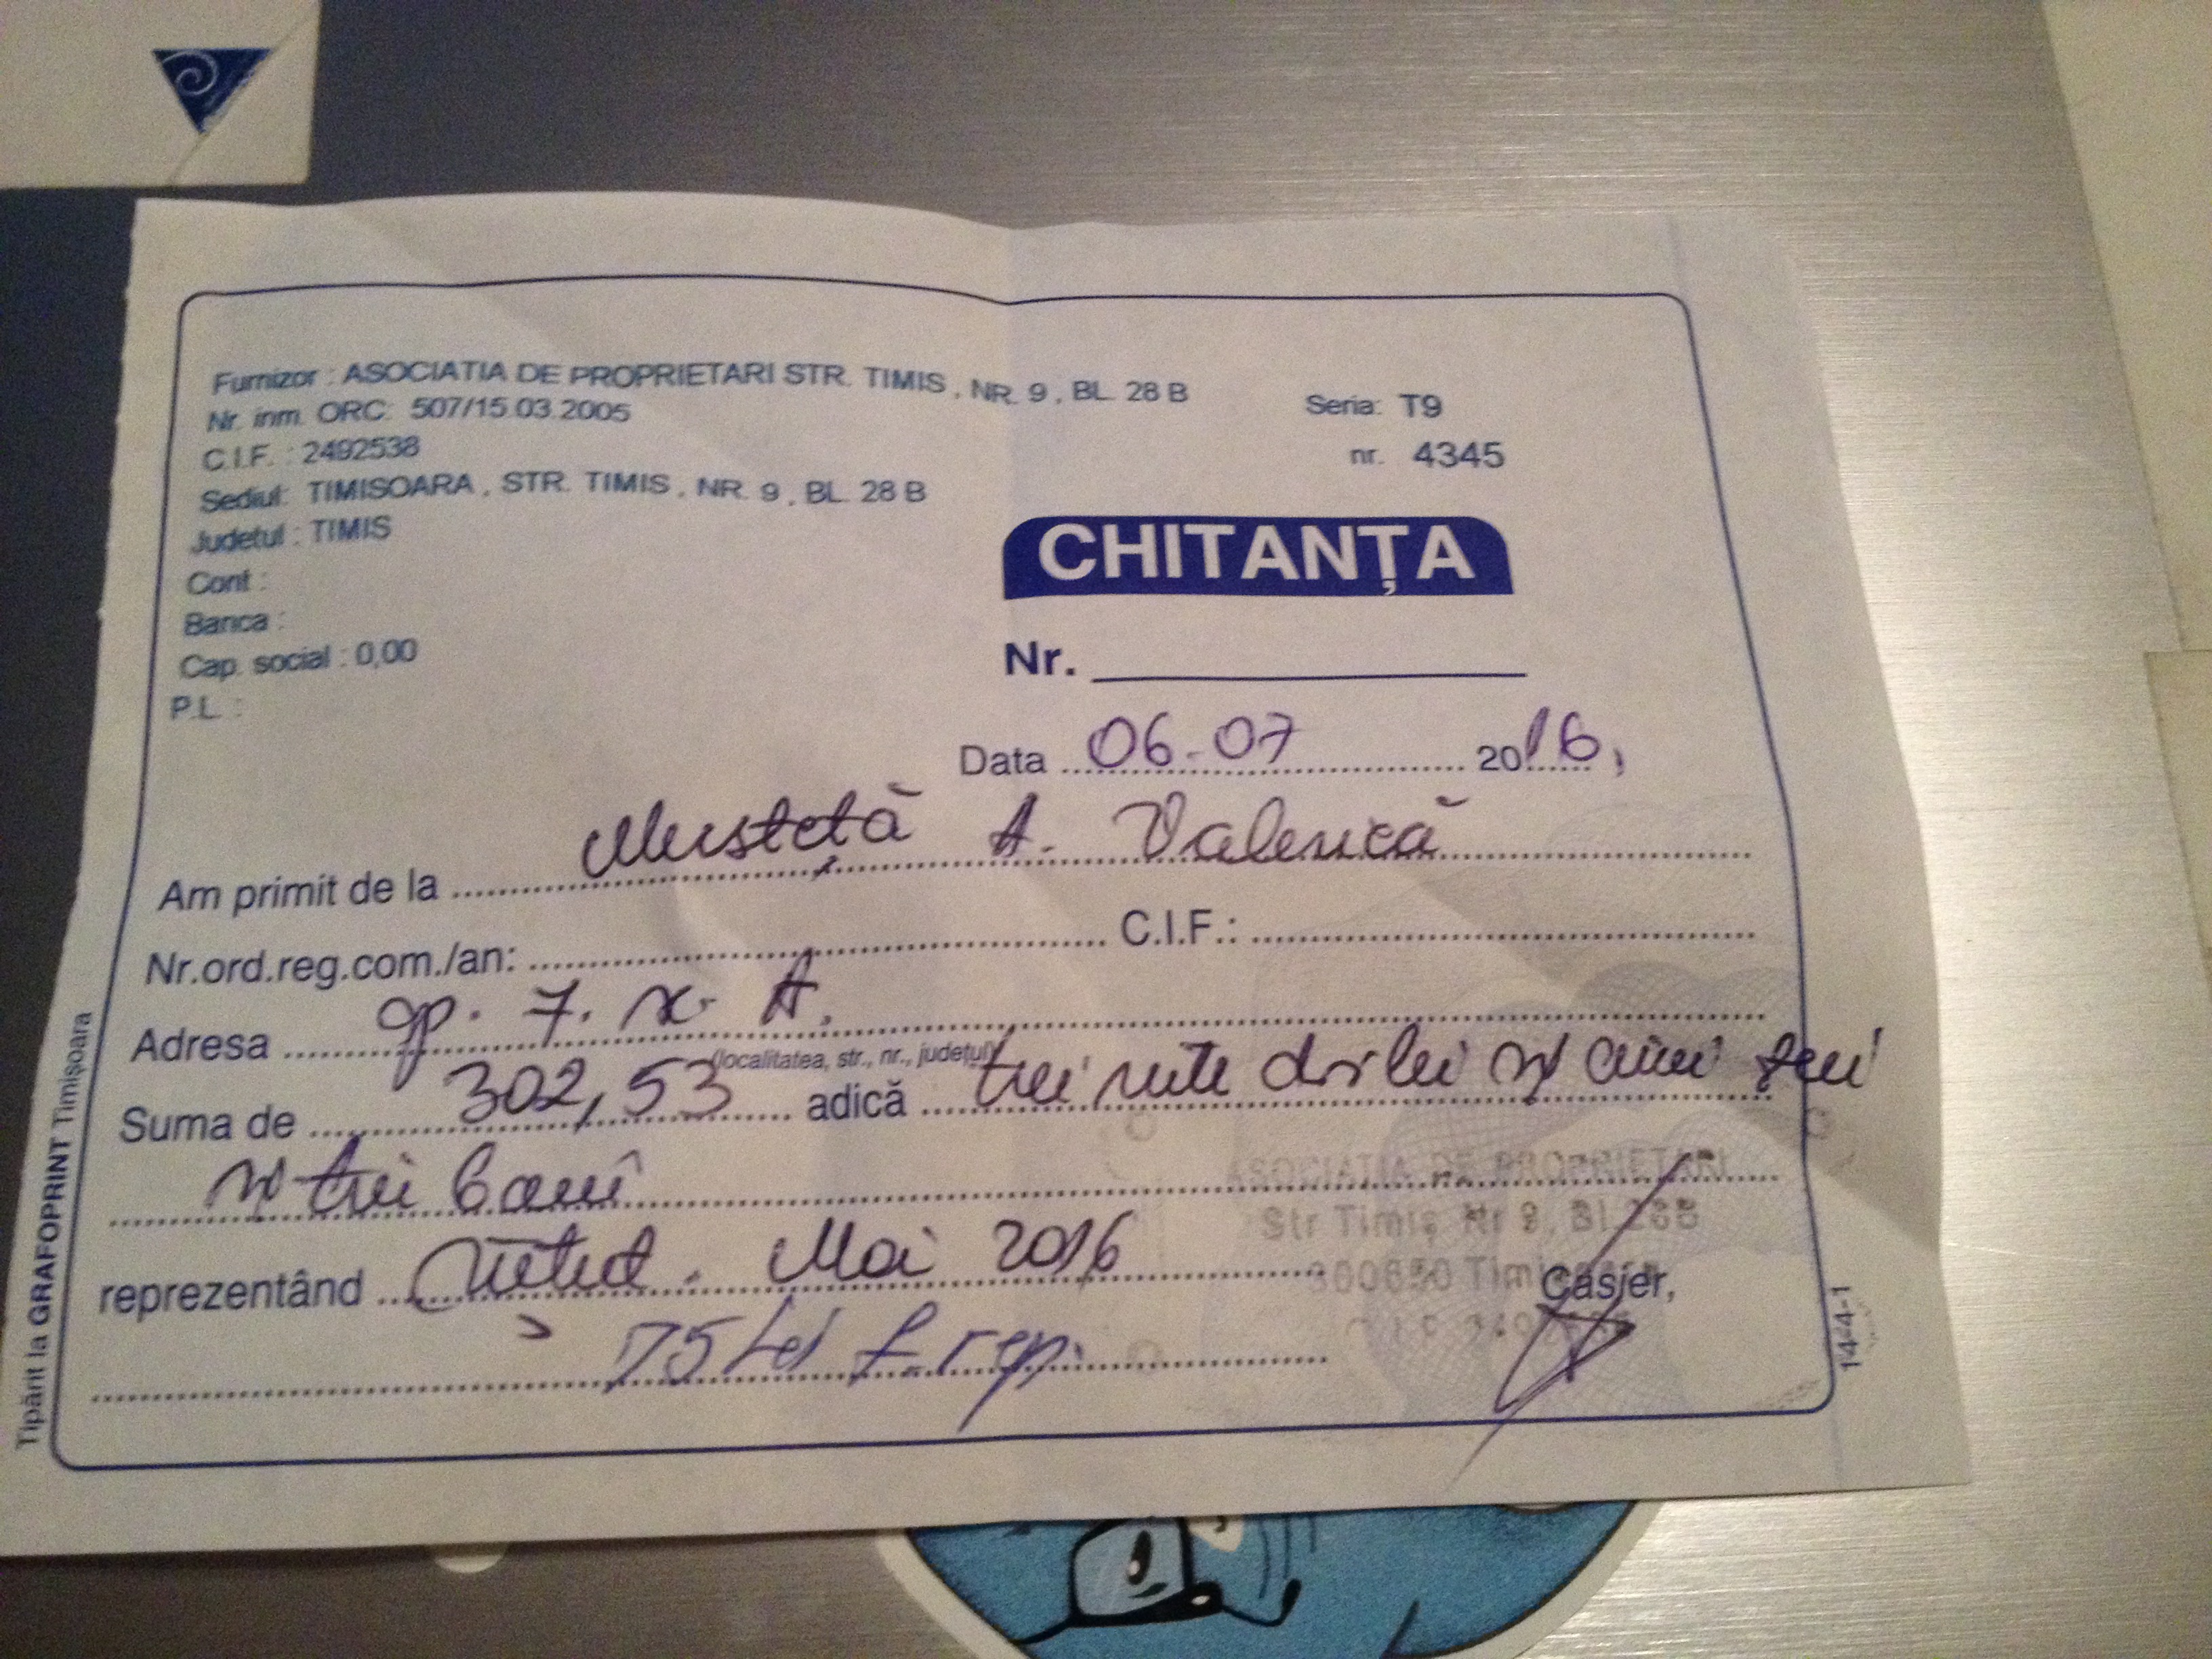 Furnizor : ASOCIATIA DE PROPRIETARI STR. TIMIS , NR. 9 , BL. 28 B
Nr. inm. ORC: 507/15.03.2005
C.I.F. : 2492538
Sediul: TIMISOARA , STR. TIMIS , NR. 9 , BL. 28 B
Judetul : TIMIS
Cont :
Banca :
Cap. social : 0,00
P.L. :
Seria: T9
nr. 4345
CHITANȚA
Nr.
Data 06-07 2016,
Am primit de la Musteță A. Valerică
Nr.ord.reg.com./an: C.I.F.:
Adresa ap. 7. sc. A.
(localitatea, str., nr., județul)
Suma de 302,53 adică trei sute doi lei și cinci zeci
și trei bani
reprezentând Mai 2016
75 Lei f. rep.
Casier,
ASOCIATIA DE PROPRIETARI
Str Timiș Nr 9, Bl 28B
Tipărit la GRAFOPRINT Timișoara
14-4-1